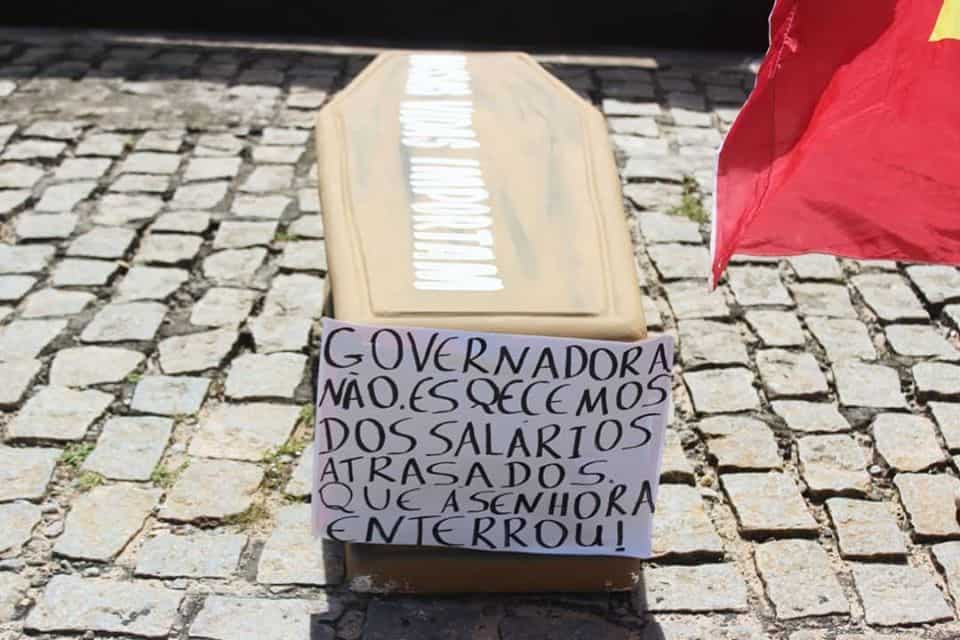 GOVERNADORA
NÃO.ESQECEMOS
DOS SALÁRIOS
ATRASADOS.
QUE A SENHORA
ENTERROU!